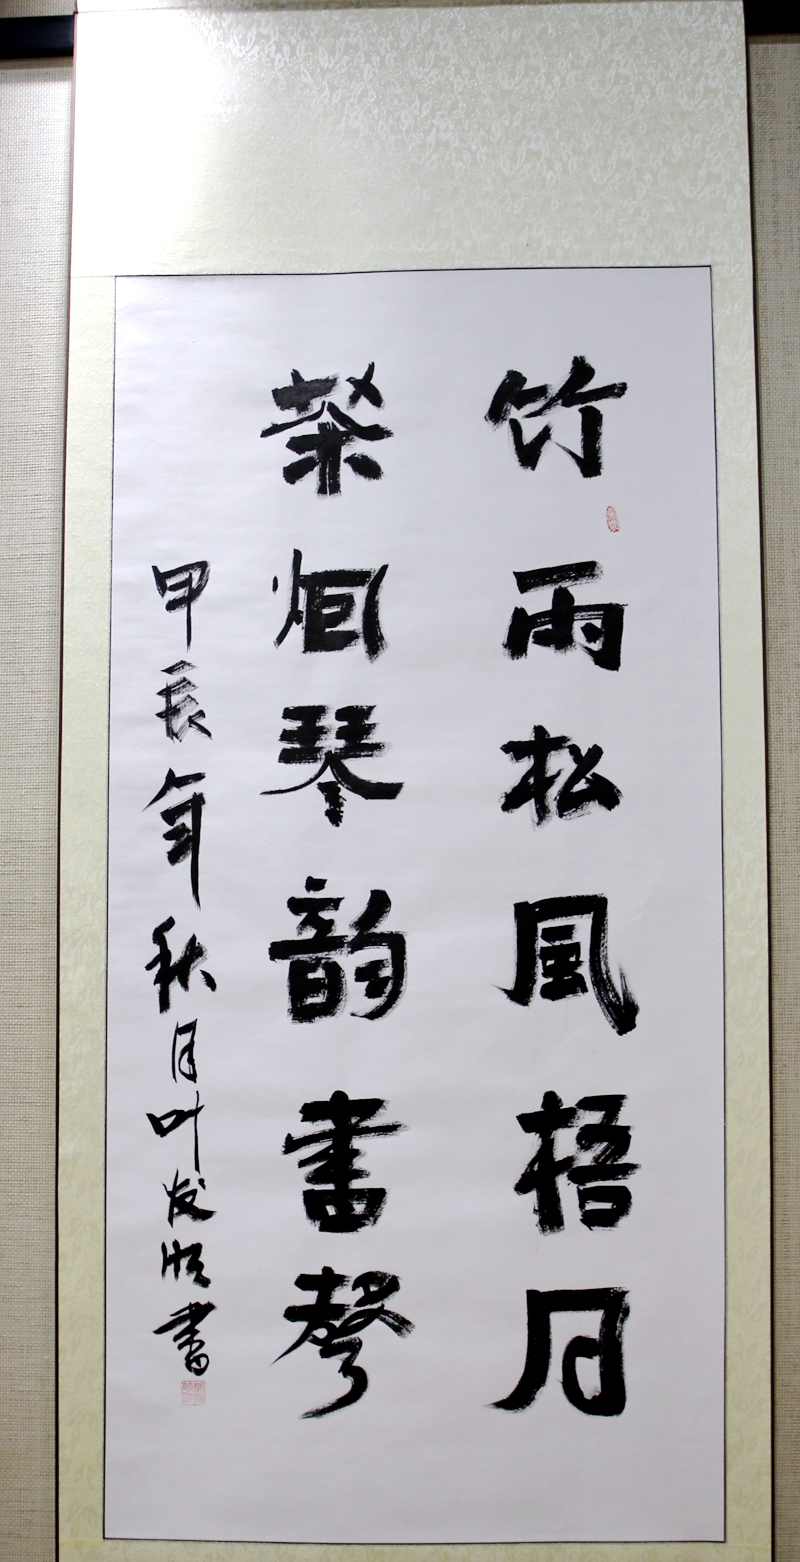 竹雨松風梧月
茶烟琴韵書聲
甲辰年秋月叶发顺書